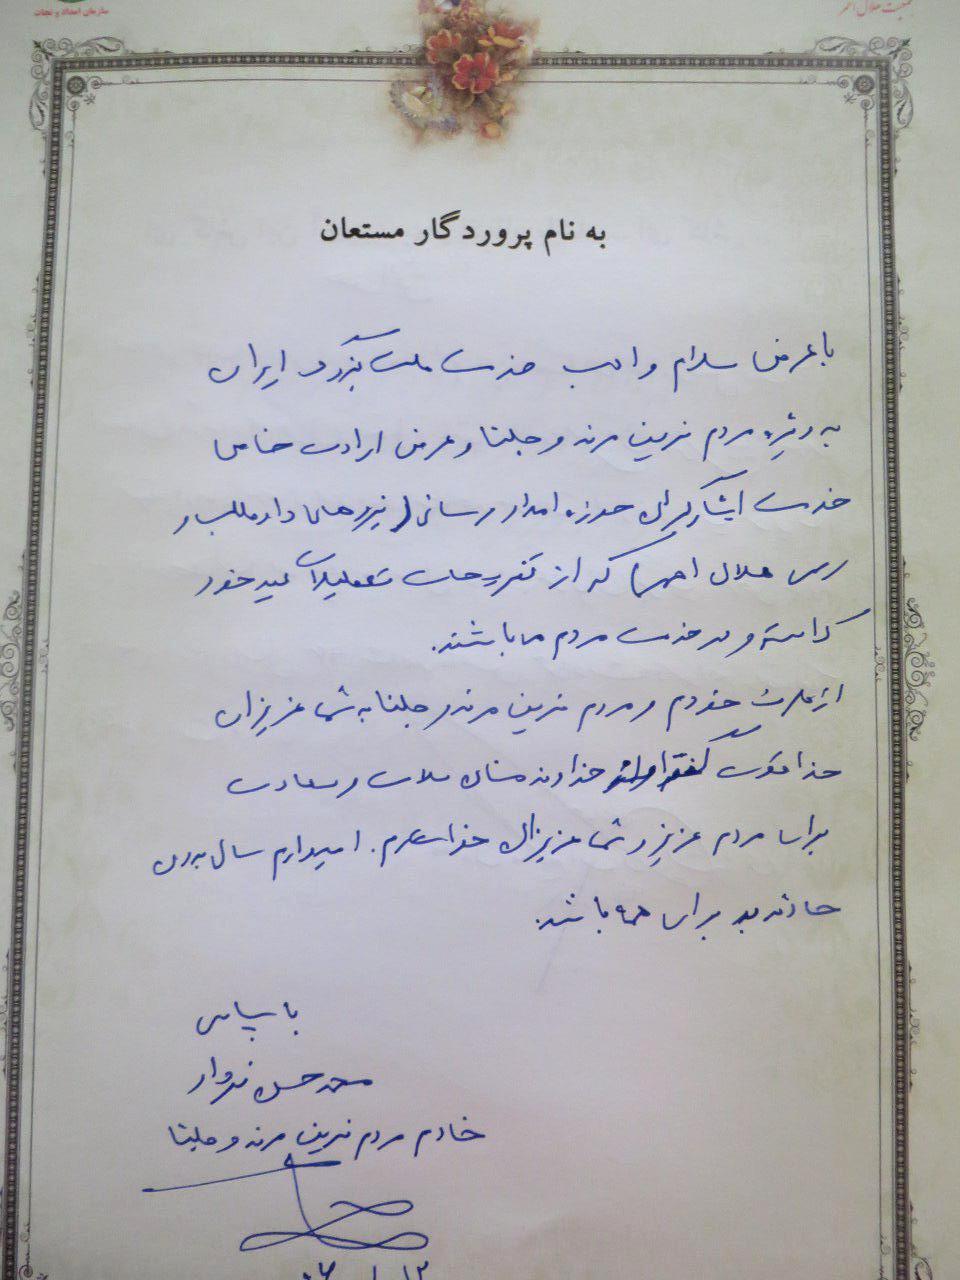 سازمان امداد و نجات
جمعیت هلال احمر
به نام پروردگار مستعان
با عرض سلام و ادب خدمت ملت بزرگ ایران
به ویژه مردم شریف مرند و جلفا و عرض ارادت خاص
خدمت ایثارگران حوزه امداد رسانی (نیروهای داوطلب و
رسمی هلال احمر) که از تفریحات تعطیلات عید خود
کاسته و در خدمت مردم می باشند.
از طرف خودم و مردم شریف مرند و جلفا به شما عزیزان
خدا قوت گفته و از خداوند منان سلامت و سعادت
برای مردم عزیز و شما عزیزان خواستارم. امیدوارم سال بدون
حادثه بد برای همه باشد.
با سپاس
محمد حسن
خادم مردم شریف مرند و جلفا